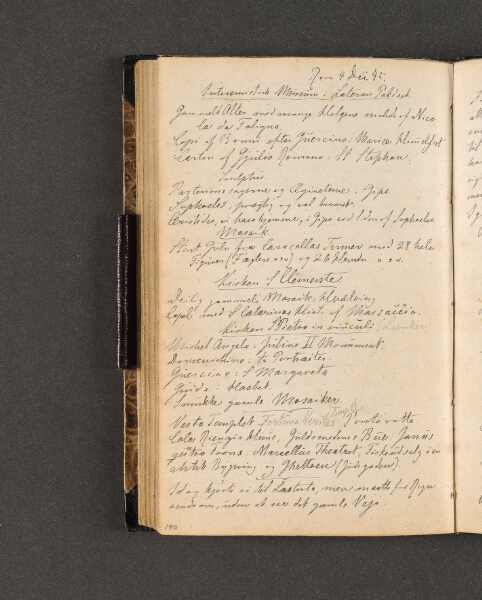 Rom 4 Dec 45.
Museum: Lateran Paladset
Gammelt Alter med mange Helgene malede af Nico
la da Foligno.
Copi af Bruni efter Guercino: Maria Himelfart
Carton af Gjulio Romano: St Stephan.
Sculptur.
og Ægineterne: Gips
Sophocles, prægtig og vel bevaret.
i Gips ved Siden af Sophocles
Mosaik.
Stort Gulv fra Caracallas Termer med 28 hele
Figurer (Fægtere oco) og 26 Hoveder o.s.v.
Kirken S Clemente
Deilig gammel Mosaik: Hvælving
Capel med S Catarinas Hist. af Massaccio.
Kirken S Pietro in vinculi
Michel Angelo: Julius II Monument
Domenichino: to Portraiter.
Guercino: S Margareta
Guido: Haabet.
Smukke gamle Mosaiker.
Vesta Templet. Fortuna Virilis Tempel. Ponte rotto.
Cola Rienzis Huus, Guldsmedenes Bue. Janus
quadrifrons. Marcellus Theatret, Fiskeudsalg i en
antik Bygning og Ghettoen (Jødegaden).
Idag kjørte vi til men maatte for Regn
vende om, inden vi saae det gamle Veji.
140